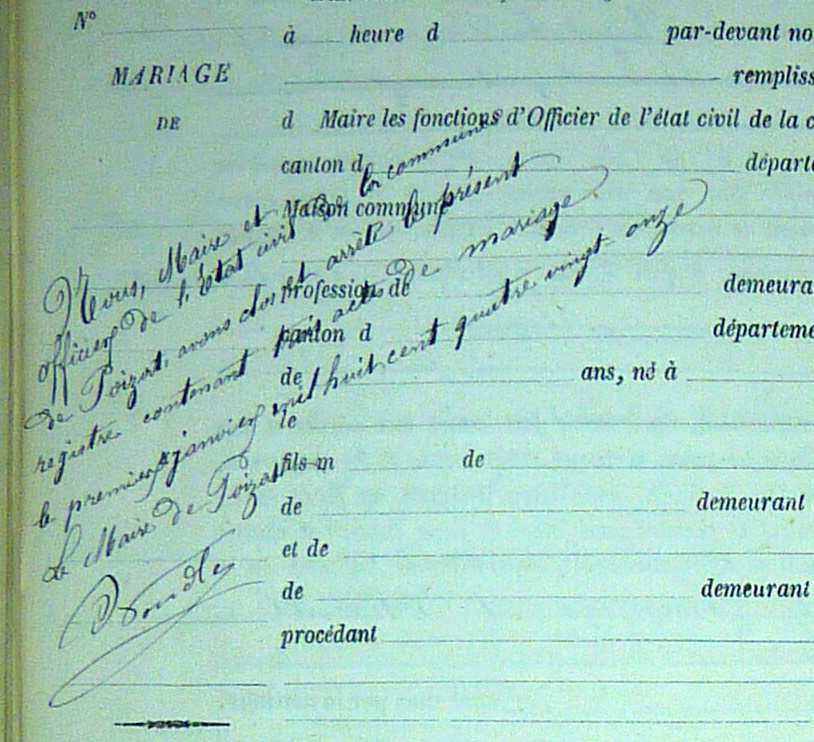 N°
à heure d par-devant no
MARIAGE
rempliss
DE
d Maire les fonctions d'Officier de l'état civil de la c
canton d départe
Maison commune
profession de demeura
canton d départeme
de ans, né à
le
fils m de
de demeurant
et de
de demeurant
procédant
Nous, Maire et
officier de l'État civil de la commune
de Poizat, avons clos et arrêté le présent
registre contenant actes de mariage
le premier janvier mil huit cent quatre vingt onze
Le Maire de Poizat